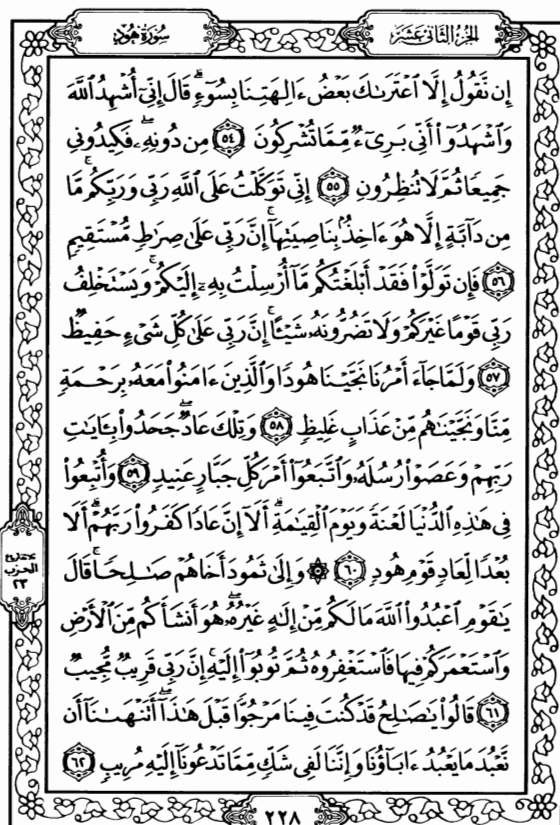 الجزء الثاني عشر
سورة هود
إِن نَّقُولُ إِلَّا ٱعْتَرَىٰكَ بَعْضُ ءَالِهَتِنَا بِسُوٓءٍۗ قَالَ إِنِّيٓ أُشْهِدُ ٱللَّهَ
وَٱشْهَدُوٓا۟ أَنِّي بَرِيٓءٌ مِّمَّا تُشْرِكُونَ ٥٤ مِن دُونِهِۦۖ فَكِيدُونِي
جَمِيعًا ثُمَّ لَا تُنظِرُونِ ٥٥ إِنِّي تَوَكَّلْتُ عَلَى ٱللَّهِ رَبِّي وَرَبِّكُمۚ مَّا
مِن دَآبَّةٍ إِلَّا هُوَ ءَاخِذٌۢ بِنَاصِيَتِهَآۚ إِنَّ رَبِّي عَلَىٰ صِرَٰطٍ مُّسْتَقِيمٍ
٥٦ فَإِن تَوَلَّوْا۟ فَقَدْ أَبْلَغْتُكُم مَّآ أُرْسِلْتُ بِهِۦٓ إِلَيْكُمْۚ وَيَسْتَخْلِفُ
رَبِّي قَوْمًا غَيْرَكُمْ وَلَا تَضُرُّونَهُۥ شَيْـًٔاۚ إِنَّ رَبِّي عَلَىٰ كُلِّ شَيْءٍ حَفِيظٌ
٥٧ وَلَمَّا جَآءَ أَمْرُنَا نَجَّيْنَا هُودًا وَٱلَّذِينَ ءَامَنُوا۟ مَعَهُۥ بِرَحْمَةٍ
مِّنَّا وَنَجَّيْنَٰهُم مِّنْ عَذَابٍ غَلِيظٍ ٥٨ وَتِلْكَ عَادٌۖ جَحَدُوا۟ بِـَٔايَٰتِ
رَبِّهِمْ وَعَصَوْا۟ رُسُلَهُۥ وَٱتَّبَعُوٓا۟ أَمْرَ كُلِّ جَبَّارٍ عَنِيدٍ ٥٩ وَأُتْبِعُوا۟
فِي هَٰذِهِ ٱلدُّنْيَا لَعْنَةً وَيَوْمَ ٱلْقِيَٰمَةِۗ أَلَآ إِنَّ عَادًا كَفَرُوا۟ رَبَّهُمْۗ أَلَا
بُعْدًا لِّعَادٍ قَوْمِ هُودٍ ٦٠ ۞ وَإِلَىٰ ثَمُودَ أَخَاهُمْ صَٰلِحًاۚ قَالَ
يَٰقَوْمِ ٱعْبُدُوا۟ ٱللَّهَ مَا لَكُم مِّنْ إِلَٰهٍ غَيْرُهُۥۖ هُوَ أَنشَأَكُم مِّنَ ٱلْأَرْضِ
وَٱسْتَعْمَرَكُمْ فِيهَا فَٱسْتَغْفِرُوهُ ثُمَّ تُوبُوٓا۟ إِلَيْهِۚ إِنَّ رَبِّي قَرِيبٌ مُّجِيبٌ
٦١ قَالُوا۟ يَٰصَٰلِحُ قَدْ كُنتَ فِينَا مَرْجُوًّا قَبْلَ هَٰذَآۖ أَتَنْهَىٰنَآ أَن
نَّعْبُدَ مَا يَعْبُدُ ءَابَآؤُنَا وَإِنَّنَا لَفِي شَكٍّ مِّمَّا تَدْعُونَآ إِلَيْهِ مُرِيبٍ ٦٢
الحزب
٢٣
٢٢٨